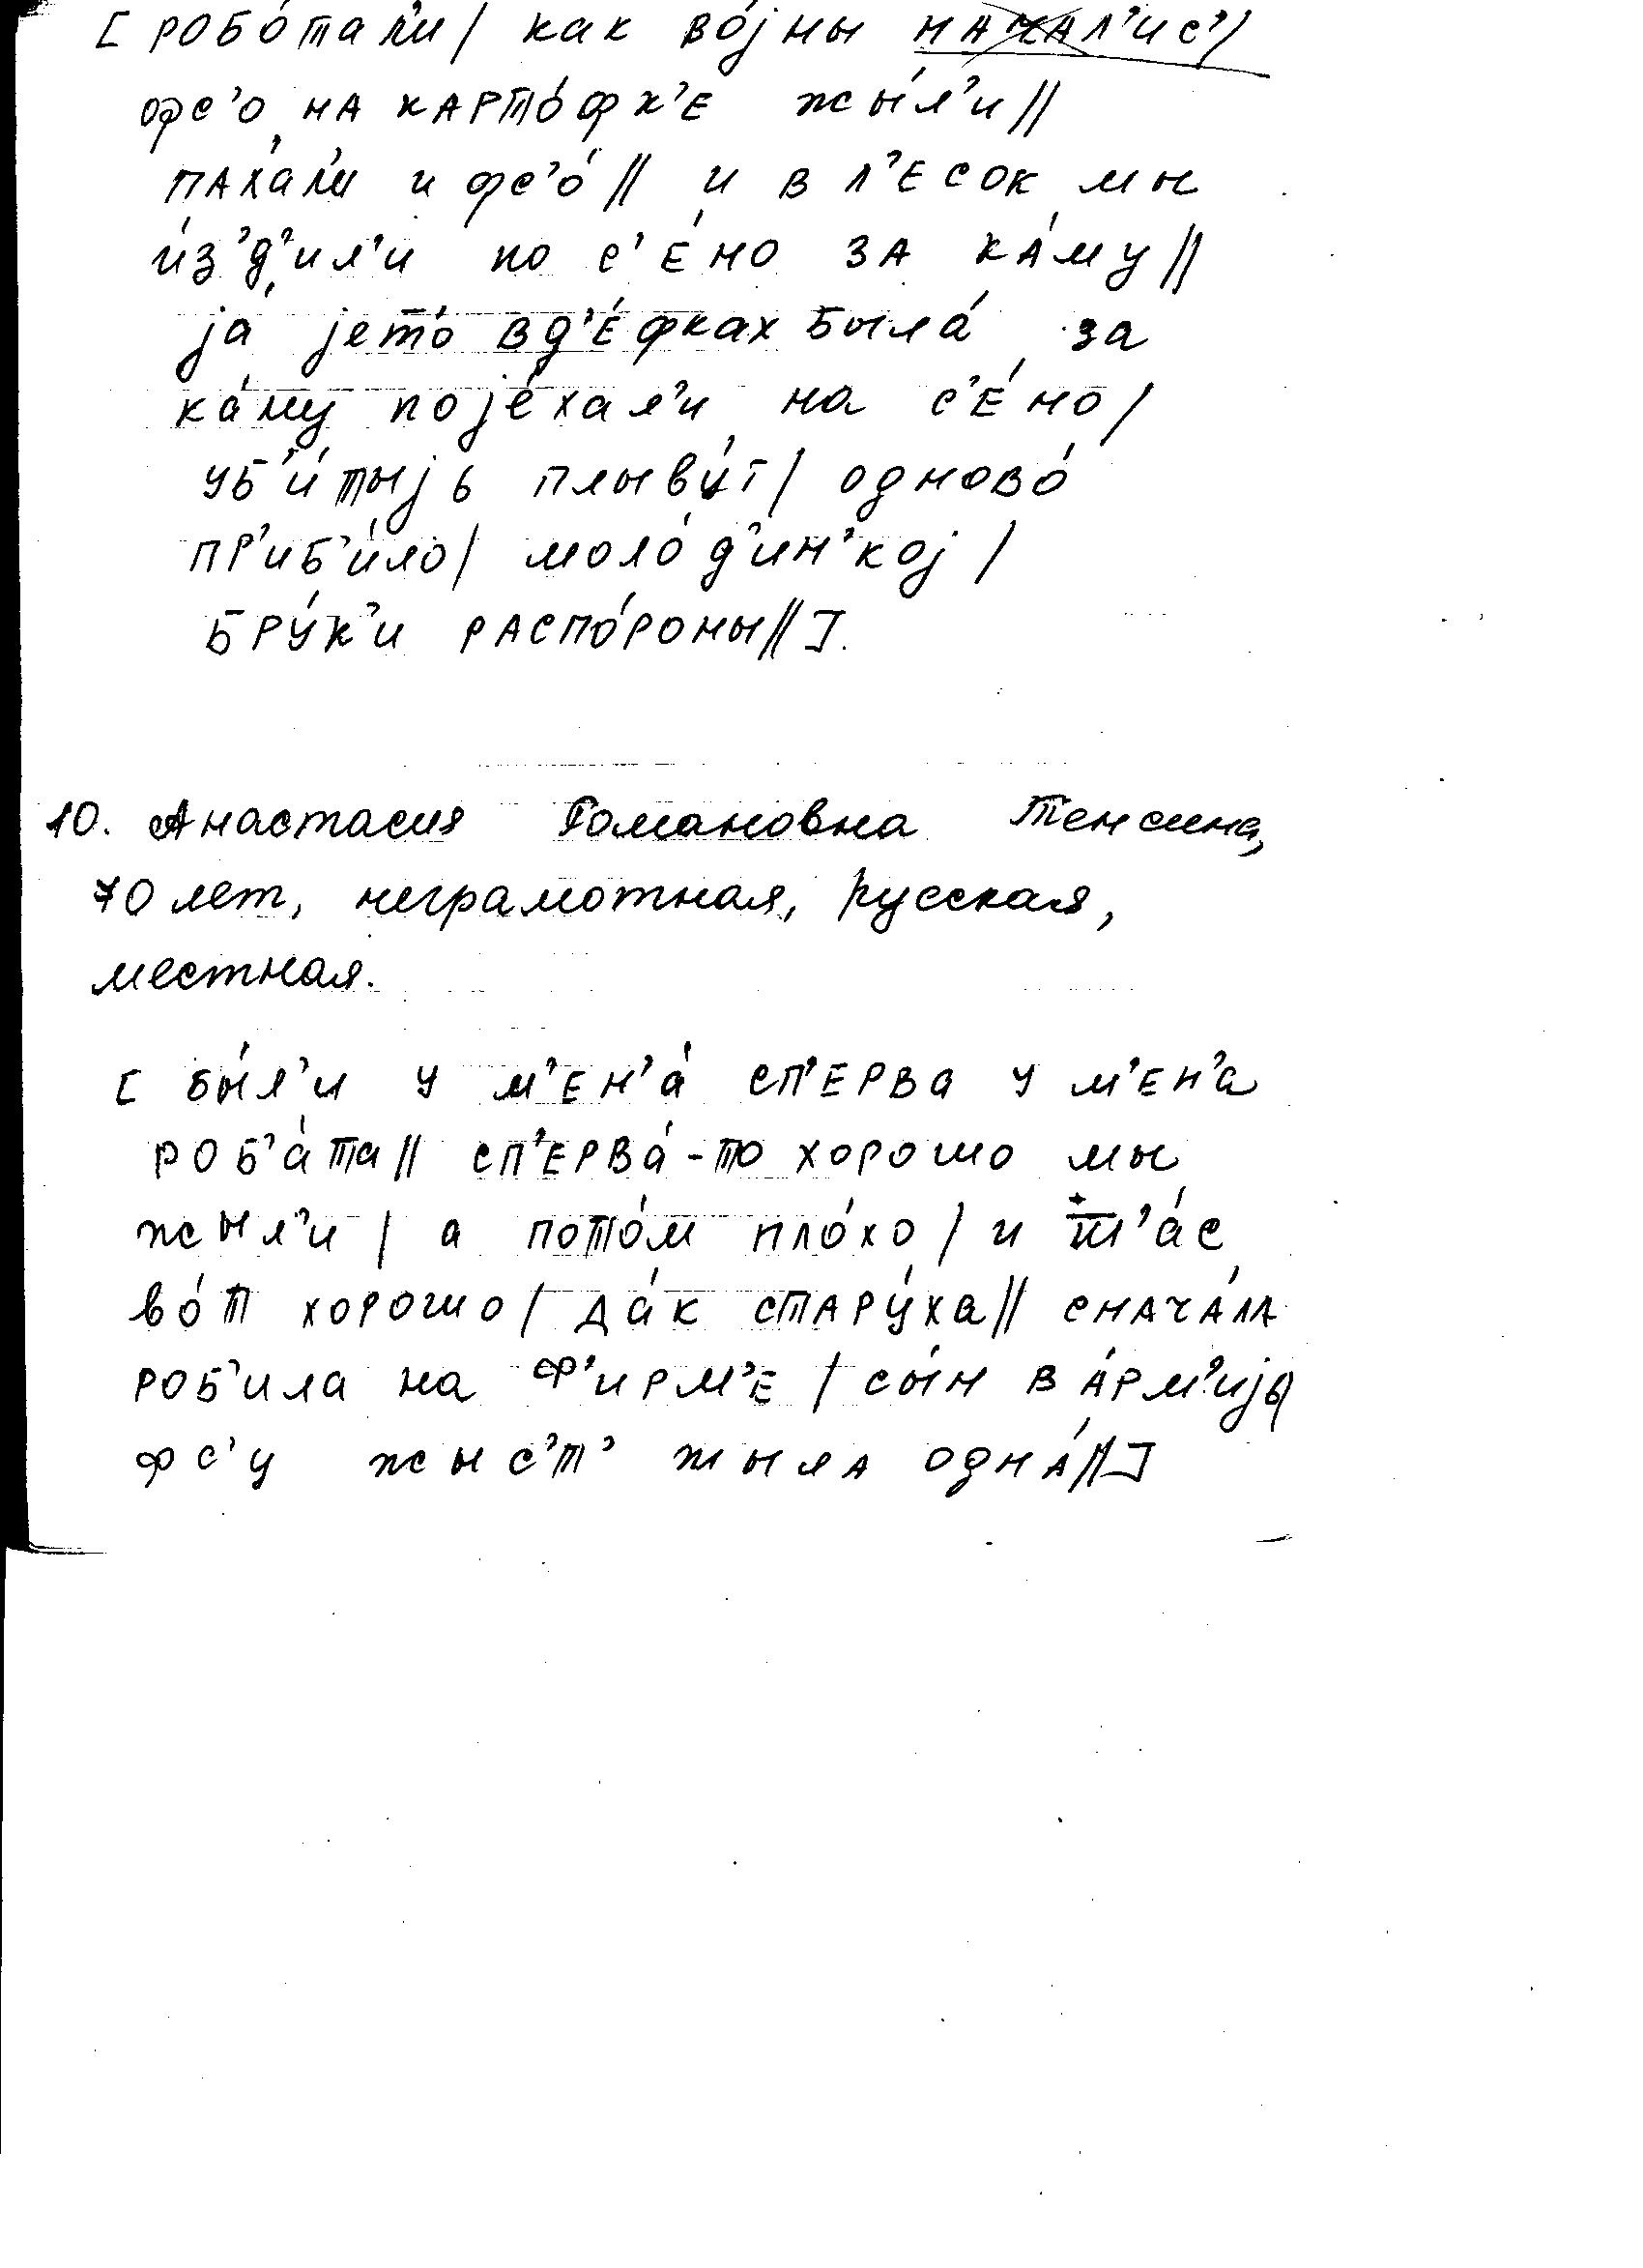 [ робо́тал'и / как во́јны начал'ис' /
фс'о на карто́фк'е жы́л'и //
паха́л'и и фс'о́ // и в л'есок мы
и́з'д'ил'и по с'е́но за ка́му //
ја́ јето́ в д'е́фках была́ за
ка́му појéхал'и на с'е́но /
уб'и́тыјь плыву́т / одново́
пр'иб'и́ло / моло́д'ин'кој /
бру́к'и распо́роны // ].
10. Анастасия Романовна Тенсина,
70 лет, неграмотная, русская,
местная.
[ бы́л'и у м'ен'а́ сп'ерва у м'ен'а
роб'а́та // сп'ерва́-то хорошо мы
жыл'и / а пото́м пло́хо / и ш'а́с
во́т хорошо / да́к стару́ха //снача́ла
роб'ила на ф'ирм'е / сы́н в а́рм'ијь /
фс'у жыс'т' жыла одна́ // ]